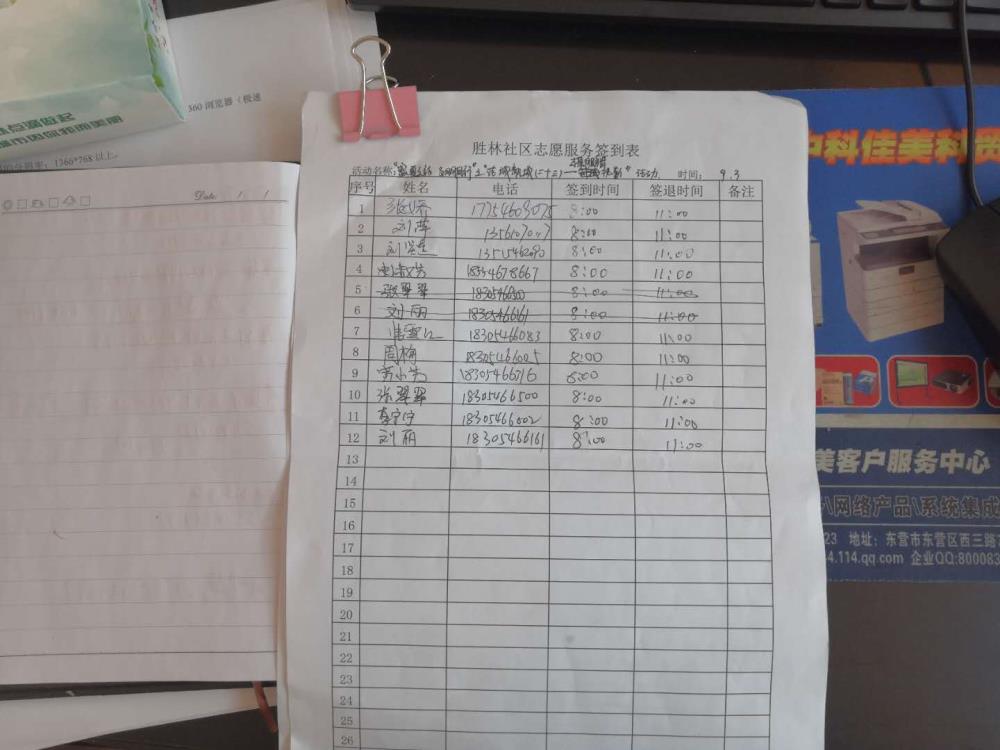 360 浏览器（极速
1366*768以上。
Date: / /
胜林社区志愿服务签到表
活动名称: 活动. 时间: 9.3
序号 姓名 电话 签到时间 签退时间 备注
1 17754609075 8:00 11:00
2 刘萍 8:00 11:00
3 8:00 11:00
4 18354678667 8:00 11:00
5 张翠翠 8:00 11:00
6 刘丽 18305466161 8:00 11:00
7 18305466083 8:00 11:00
8 周梅 18305466025 8:00 11:00
9 18305466716 8:00 11:00
10 张翠翠 18305466500 8:00 11:00
11 李宁宁 18305466002 8:00 11:00
12 刘丽 18305466161 8:00 11:00
13
14
15
16
17
18
19
20
21
22
23
24
25
26
中科佳美科贸
美客户服务中心
\网络产品\系统集成
23 地址：东营市东营区西三路
4.114.qq.com 企业QQ:800083